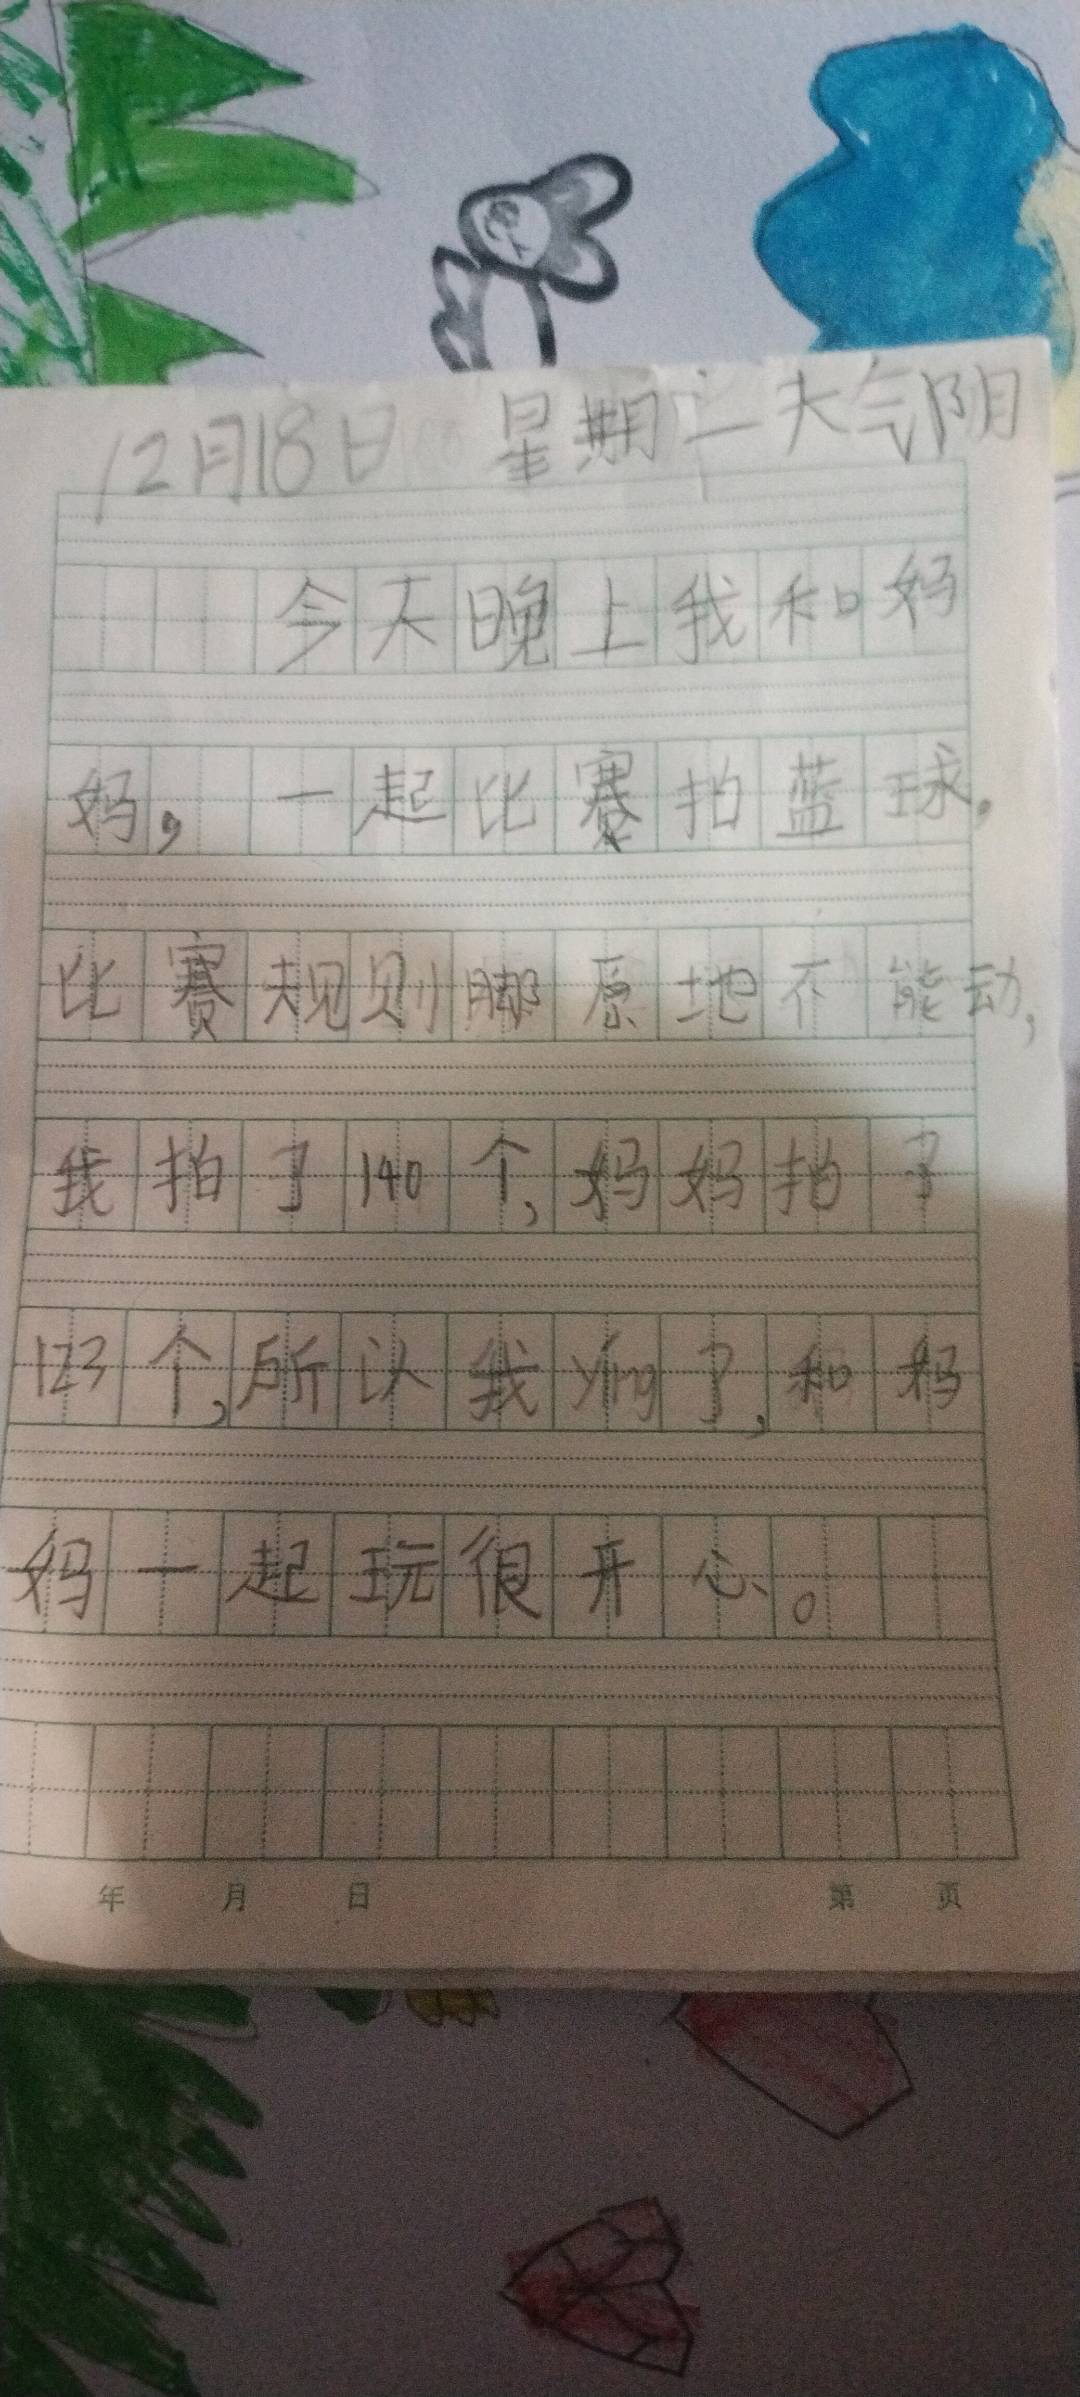 12月18日 星期一天气阴
今天晚上我和妈
妈，一起比赛拍蓝球。
比赛规则脚原地不能动，
我拍了140个，妈妈拍了
123个，所以我yíng了，和妈
妈一起玩很开心。
年 月 日 第 页